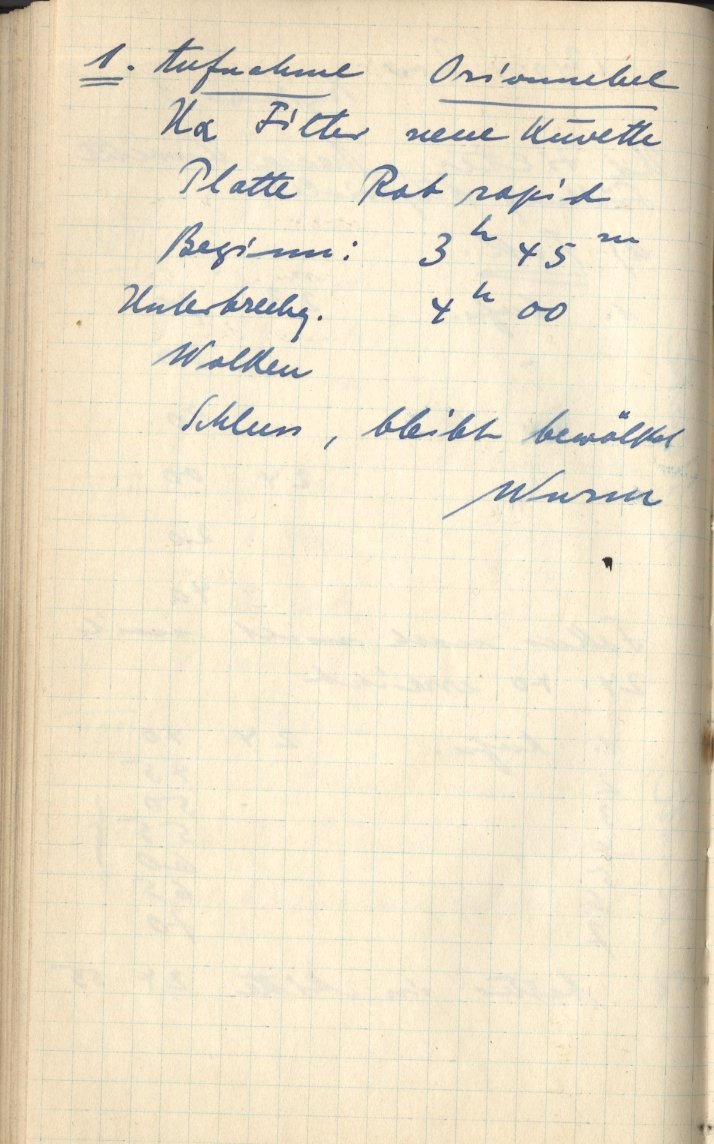 1. Aufnahme Orionnebel
Hα Filter neue Küvette
Platte Rot rapid
Beginn: 3ʰ 45ᵐ
Unterbrechg. 4ʰ 00
Wolken
Schluss, bleibt bewölkt
Wurm